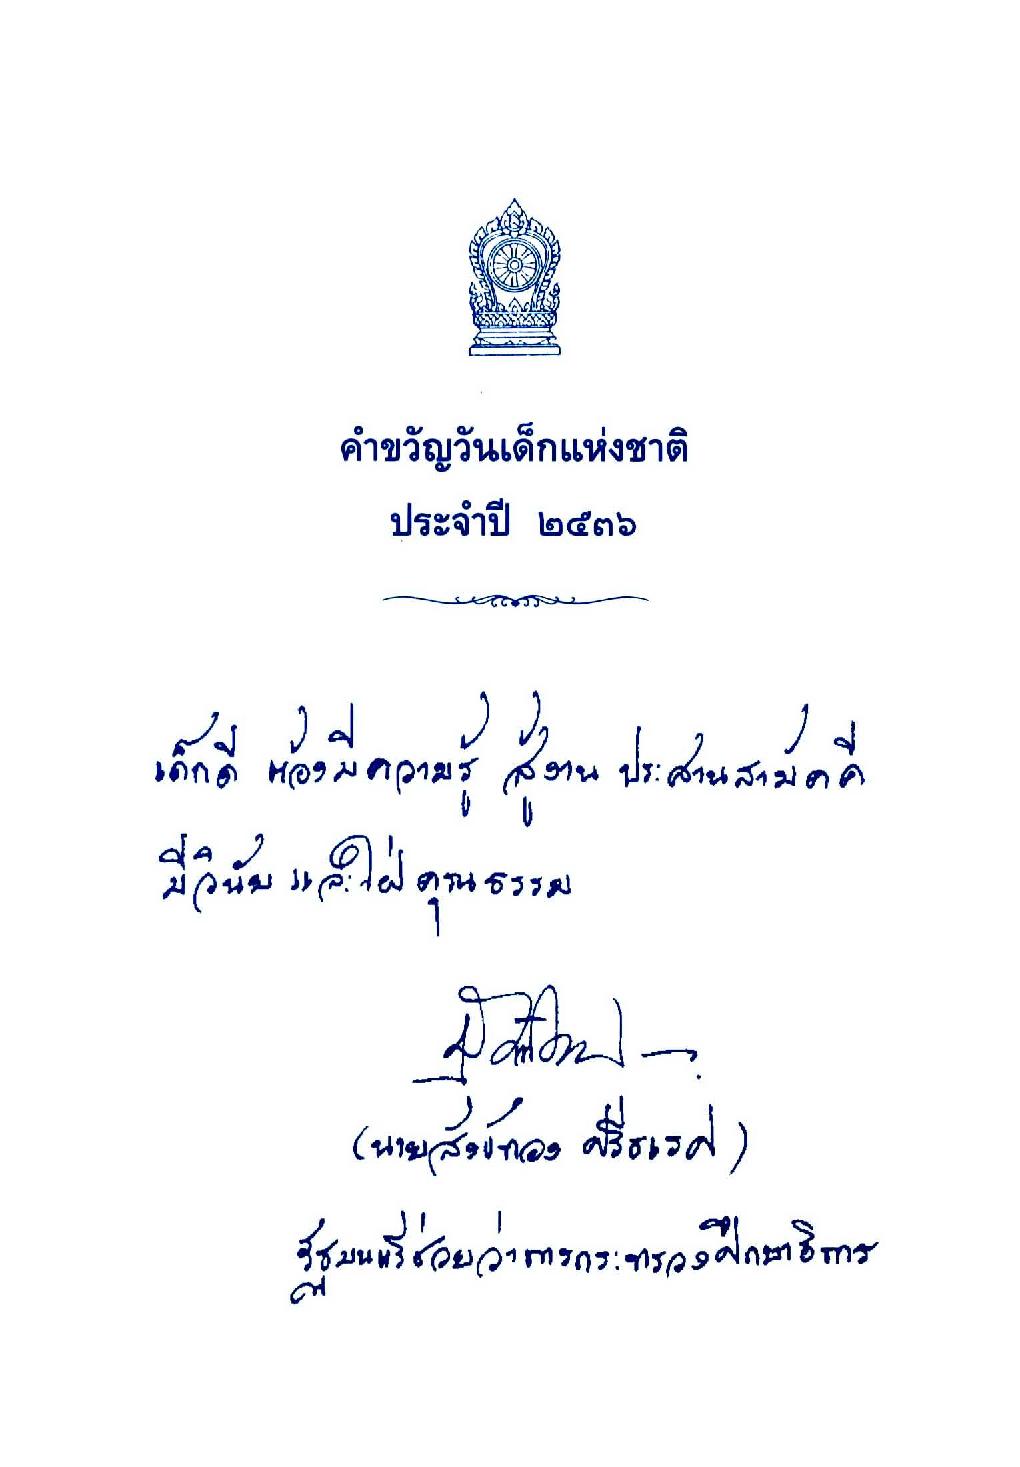 คำขวัญวันเด็กแห่งชาติ
ประจำปี ๒๕๓๖
เด็กดี ต้องมีความรู้ สู้งาน ประสานสามัคคี
มีวินัย และใฝ่คุณธรรม
(นายสังข์ทอง ศรีธเรศ)
รัฐมนตรีช่วยว่าการกระทรวงศึกษาธิการ